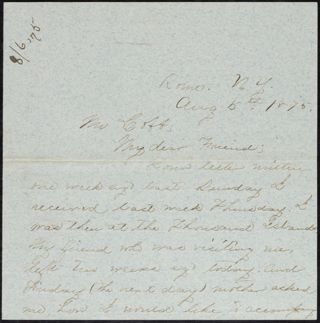 8/6/75
Rome. N.Y.
Aug 6th 1875.
Mr Cobb;
My dear Friend;
Your letter written
one week ago last Sunday I
received last week Thursday. I
was then at the Thousand Islands
My friend who was visiting me,
left two weeks ago today. and
Sunday (the next day) mother asked
me how I would like to accompany